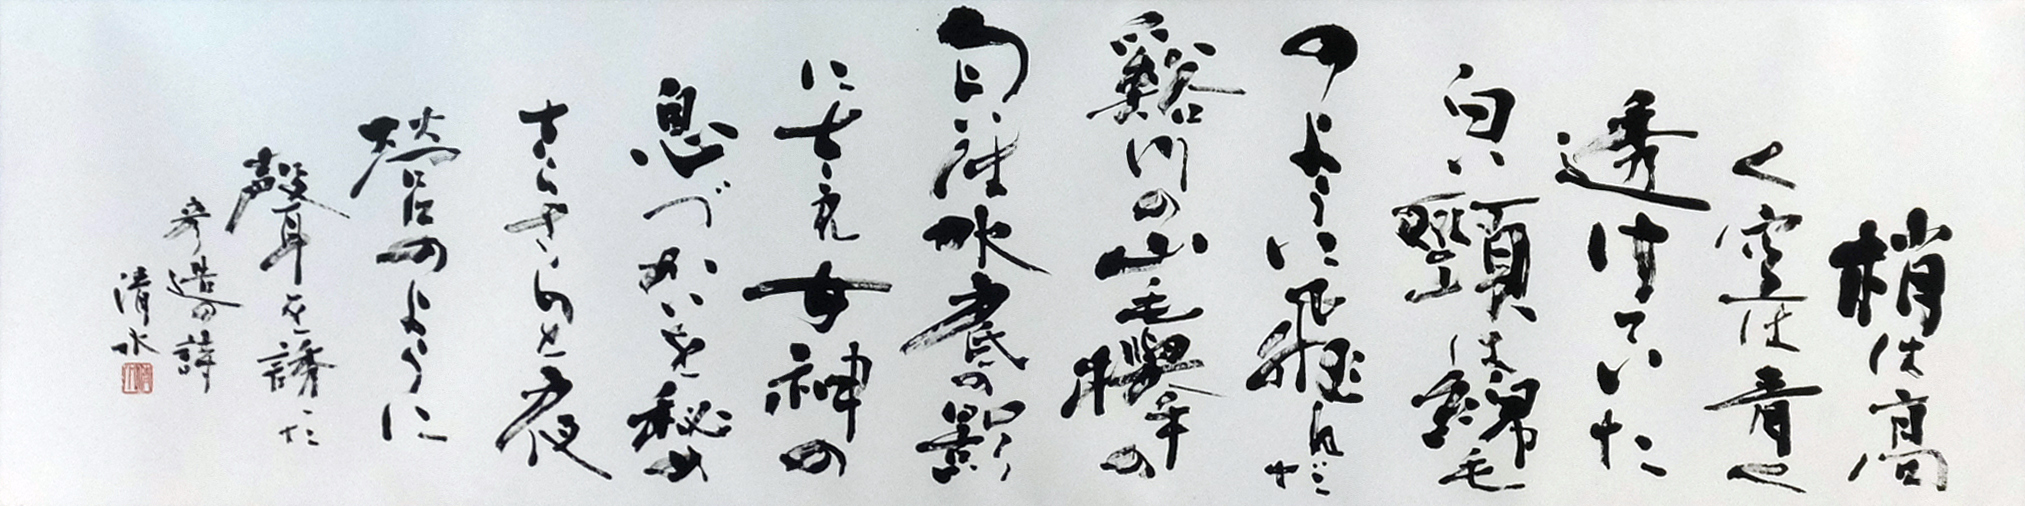 梢は高
く空は青く
透けていた
白い は綿毛
のように飛んだ
谿川の山毛欅の
水底の影
に 女神の
息づかいを秘め
さらさらと夜
營のように
聲を誘た
造の詩
清水